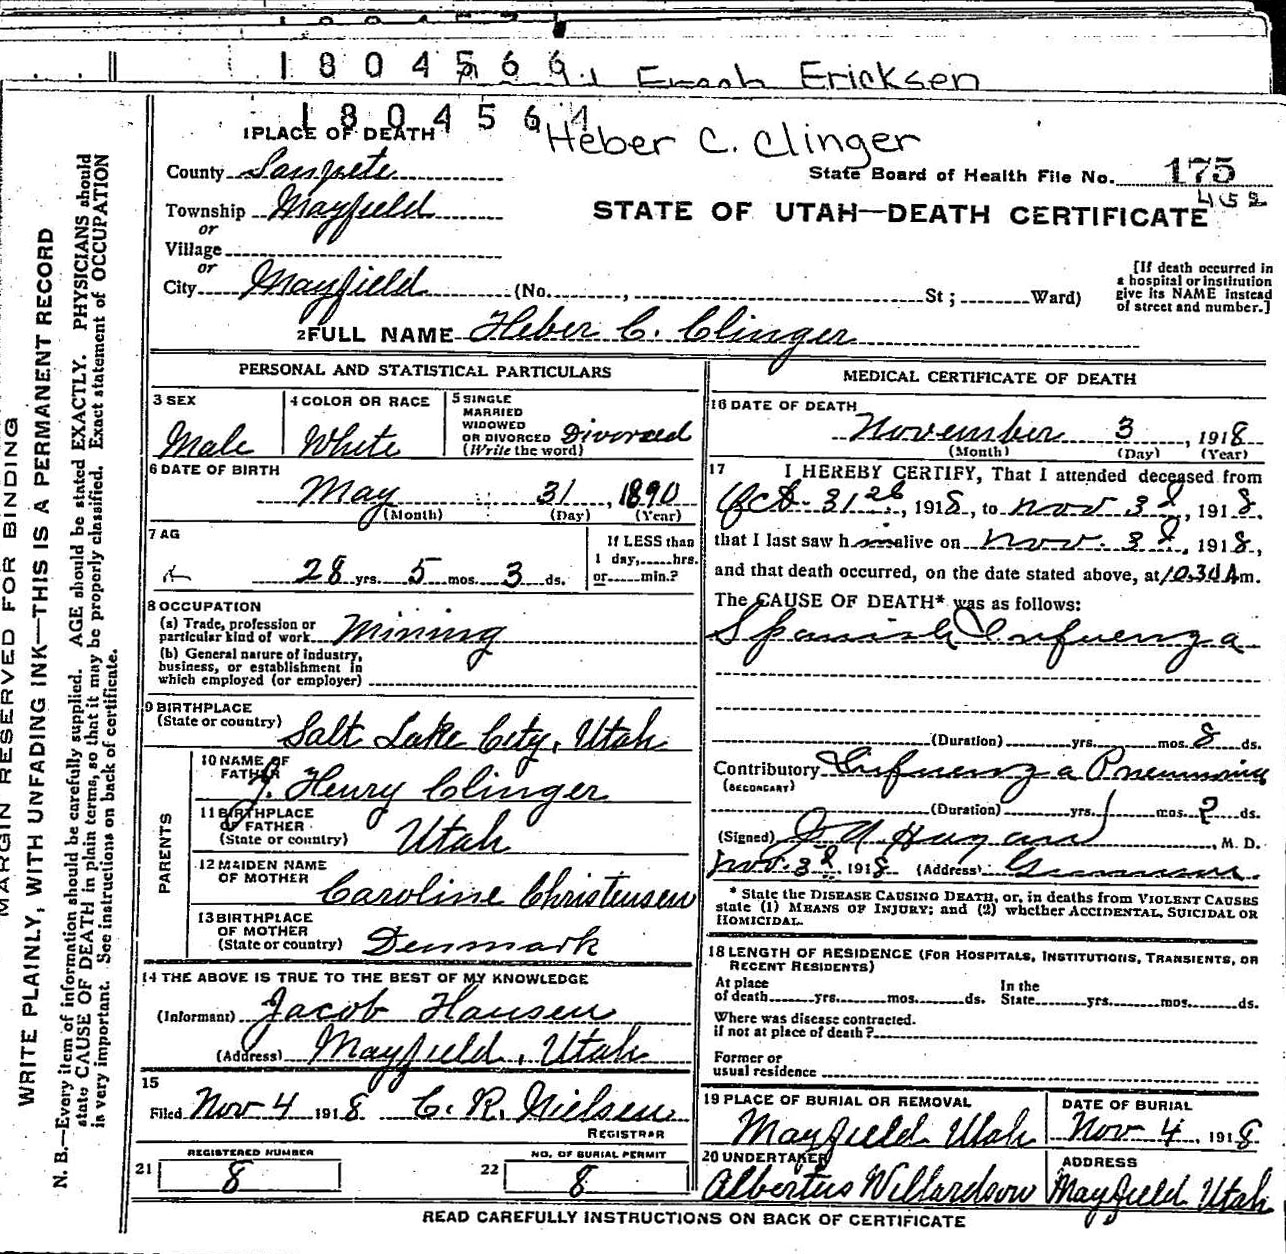 1804566
Ericksen
1804564
Heber C. Clinger
1 PLACE OF DEATH
County Sanpete
State Board of Health File No. 175
452
Township Mayfield
STATE OF UTAH—DEATH CERTIFICATE
or
Village
or
City Mayfield (No. , St; Ward)
[If death occurred in
a hospital or institution
give its NAME instead
of street and number.]
2 FULL NAME Heber C. Clinger
PERSONAL AND STATISTICAL PARTICULARS
3 SEX
Male
4 COLOR OR RACE
White
5 SINGLE
MARRIED
WIDOWED
OR DIVORCED Divorced
(Write the word)
6 DATE OF BIRTH
May 31, 1890
(Month) (Day) (Year)
7 AG
28 yrs. 5 mos. 3 ds.
If LESS than
1 day, hrs.
or min.?
8 OCCUPATION
(a) Trade, profession or
particular kind of work Mining
(b) General nature of industry,
business, or establishment in
which employed (or employer)
9 BIRTHPLACE
(State or country) Salt Lake City, Utah
PARENTS
10 NAME OF
FATHER J. Henry Clinger
11 BIRTHPLACE
OF FATHER
(State or country) Utah
12 MAIDEN NAME
OF MOTHER
Caroline Christensen
13 BIRTHPLACE
OF MOTHER
(State or country) Denmark
14 THE ABOVE IS TRUE TO THE BEST OF MY KNOWLEDGE
(Informant) Jacob Hansen
(Address) Mayfield, Utah
15
Filed Nov 4 1918 C. R. Nielsen
REGISTRAR
REGISTERED NUMBER
21 8
NO. OF BURIAL PERMIT
22 8
MEDICAL CERTIFICATE OF DEATH
16 DATE OF DEATH
November 3, 1918
(Month) (Day) (Year)
17 I HEREBY CERTIFY, That I attended deceased from
Oct. 31, 1918, to Nov 3d, 1918.
that I last saw him alive on Nov. 3d, 1918,
and that death occurred, on the date stated above, at 10.30 A m.
The CAUSE OF DEATH* was as follows:
Spanish Infuenza
(Duration) yrs. mos. 8 ds.
Contributory Infuenza Pneumonia
(SECONDARY)
(Duration) yrs. mos. 2 ds.
(Signed) , M. D.
Nov. 3d 1918 (Address)
* State the DISEASE CAUSING DEATH, or, in deaths from VIOLENT CAUSES
state (1) MEANS OF INJURY; and (2) whether ACCIDENTAL, SUICIDAL OR
HOMICIDAL.
18 LENGTH OF RESIDENCE (FOR HOSPITALS, INSTITUTIONS, TRANSIENTS, OR
RECENT RESIDENTS)
At place
of death yrs. mos. ds.
In the
State yrs. mos. ds.
Where was disease contracted.
if not at place of death?
Former or
usual residence
19 PLACE OF BURIAL OR REMOVAL
Mayfield Utah
DATE OF BURIAL
Nov 4, 1918
20 UNDERTAKER
Albertus Willardson
ADDRESS
Mayfield Utah
READ CAREFULLY INSTRUCTIONS ON BACK OF CERTIFICATE
MARGIN RESERVED FOR BINDING
WRITE PLAINLY, WITH UNFADING INK—THIS IS A PERMANENT RECORD
N. B.—Every item of information should be carefully supplied. AGE should be stated EXACTLY. PHYSICIANS should
state CAUSE OF DEATH in plain terms, so that it may be properly classified. Exact statement of OCCUPATION
is very important. See instructions on back of certificate.